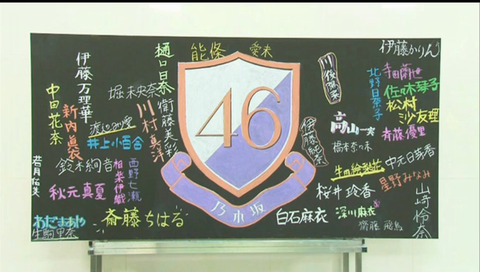 伊藤万理華
樋口日奈
能條愛未
伊藤かりん
中田花奈
新内眞衣
堀未央奈
衛藤美彩
川村真洋
川後陽菜
北野日奈子
寺田蘭世
佐々木琴子
松村沙友理
46
井上小百合
伊藤純奈
高山一実
斉藤優里
橋本奈々未
若月佑美
鈴木絢音
相楽伊織
西野七瀬
生田絵梨花
中元日芽香
星野みなみ
山崎怜奈
秋元真夏
桜井玲香
わだまあや
斎藤ちはる
乃木坂
白石麻衣
深川麻衣
生駒里奈
齋藤飛鳥